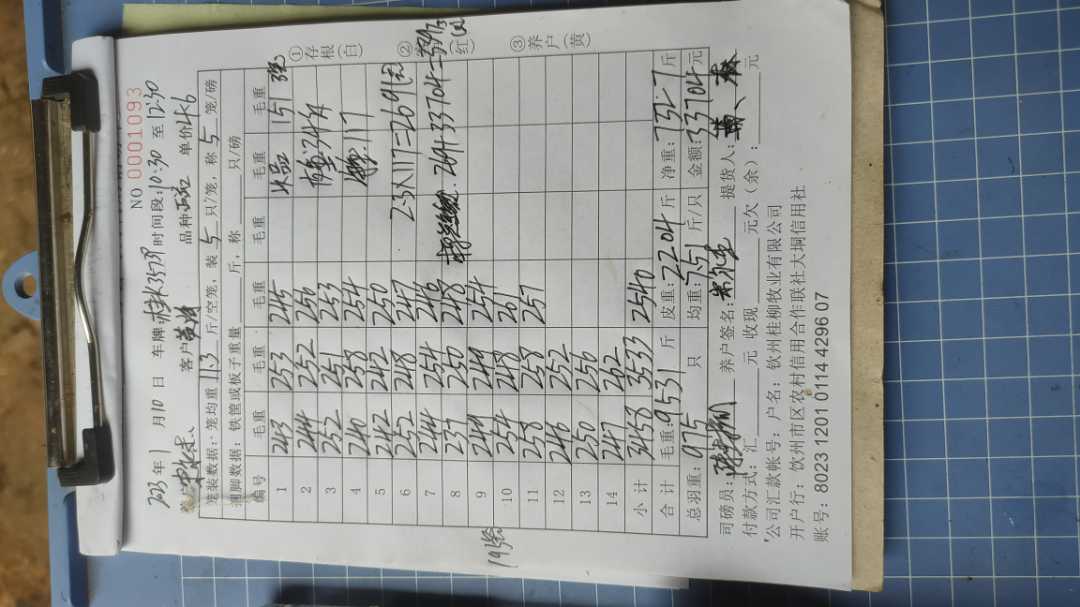 NO 0001093
2023年1月10日 车牌 时间段:10:30至12:30
客户 黄 品种 单价4.6
笼装数据:笼均重11.3斤/空笼,装5只/笼,称5笼/磅
测脚数据:铁筐或板子重量 斤,称 只/磅
编号 毛重 毛重 毛重 毛重 毛重 毛重
1 243 253 245 151
2 244 252 250
3 252 251 253
4 240 258 254 117
5 242 242 250
6 252 248 247 2.3×117=269.1元
7 244 254
8 237 250 248 269.1+33704=
9 249 249 254
10 254 248 261
11 258 258 257
12 246 252
13 250 256
14 247 262
小计 3458 3533 2540
合计 毛重:9531斤 皮重:2204斤 净重:7327斤
总羽重:975只 均重:7.51斤/只 金额:33704元
司磅员: 养户签名: 提货人:
付款方式:汇 元 收现 元欠(余): 元
公司汇款帐号:户名:钦州桂柳牧业有限公司
开户行:饮州市区农村信用合作联社大垌信用社
账号:8023 1201 0114 4296 07
①存根(白)
② (红)
③养户(黄)